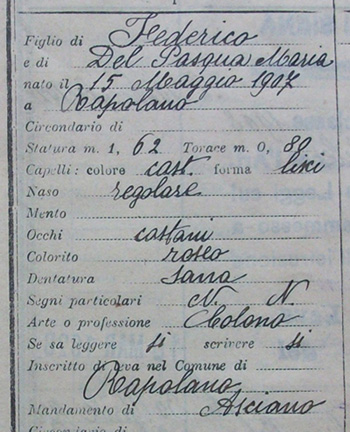 Figlio di Federico
e di Del Pasqua Maria
nato il 15 Maggio 1907
a Rapolano
Circondario di
Statura m. 1, 62 Torace m. 0, 80
Capelli: colore cast. forma lisci
Naso regolare
Mento
Occhi castani
Colorito roseo
Dentatura sana
Segni particolari N. N.
Arte o professione Colono
Se sa leggere si scrivere si
Inscritto di leva nel Comune di
Rapolano
Mandamento di Asciano
Circondario di